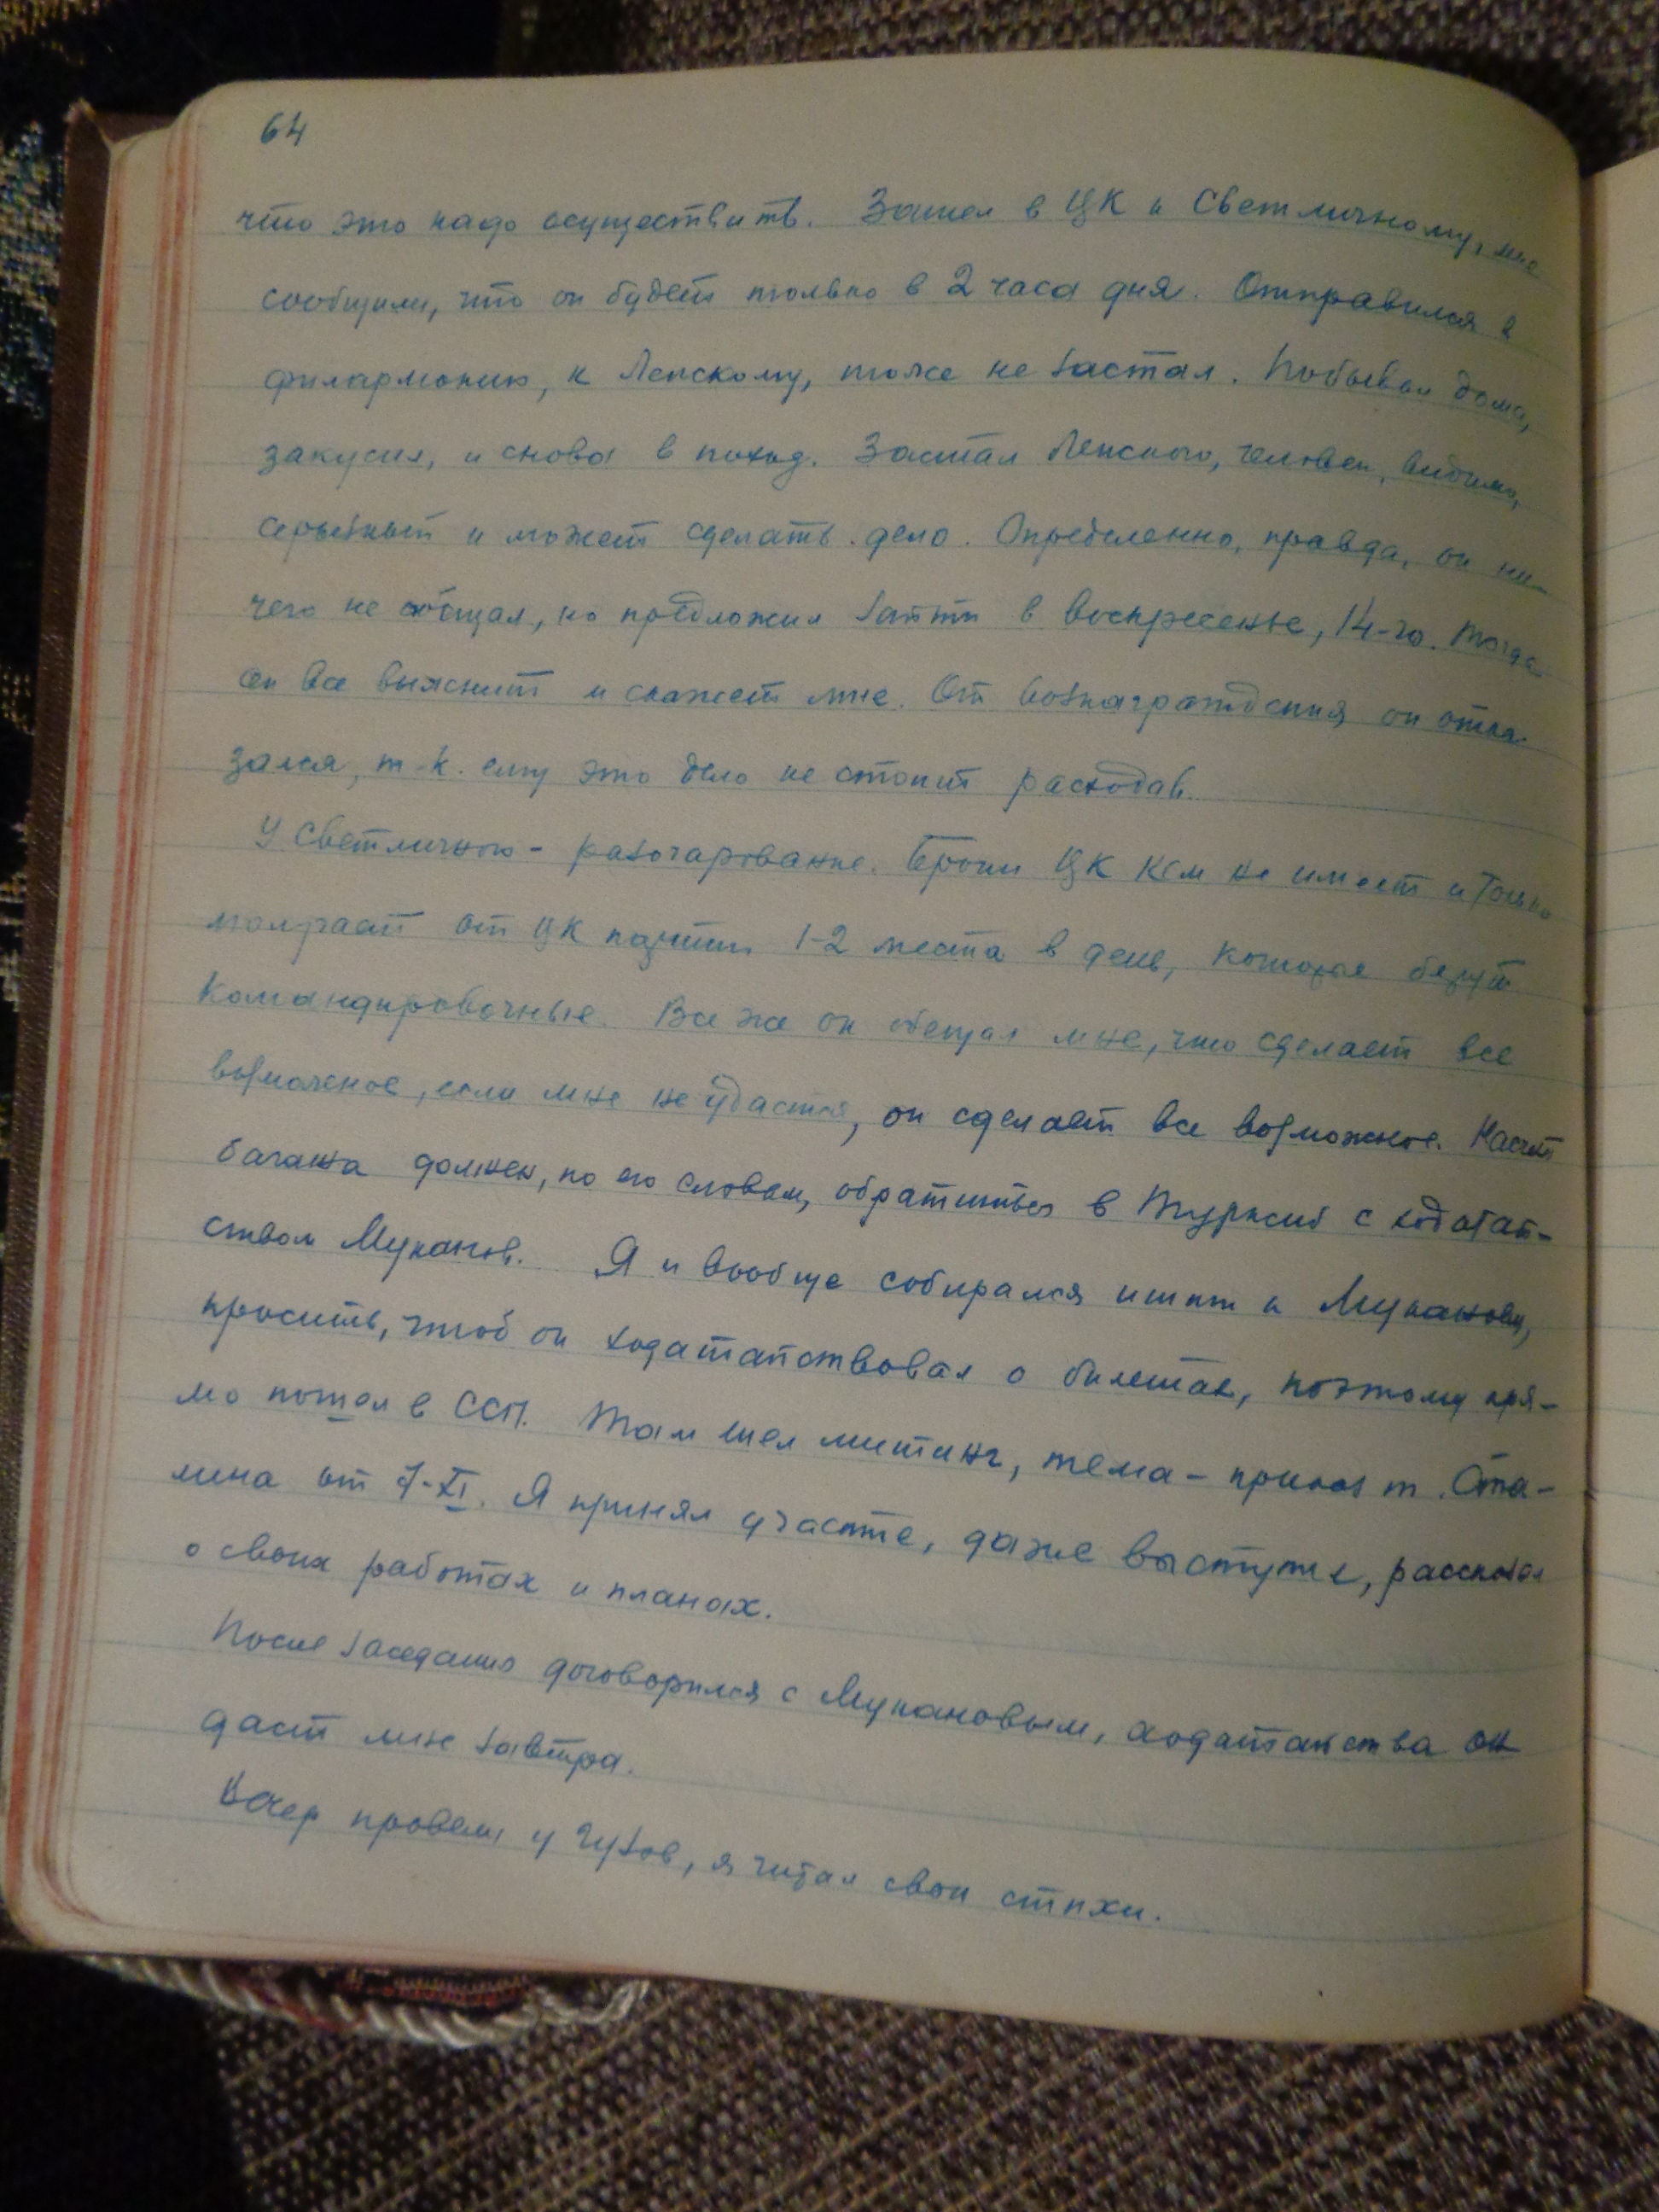 64
что это надо осуществить. Зашел в ЦК к Светличному, мне
сообщили, что он будет только в 2 часа дня. Отправился в
филармонию, к Лепскому, тоже не застал. Побывал дома,
закусил, и снова в поход. Застал Лепского, человек, видимо,
серьезный и может сделать дело. Определенно, правда, он ни-
чего не обещал, но предложил зайти в воскресенье, 14-го. Тогда
он все выяснит и скажет мне. От вознаграждения он отка-
зался, т-к. ему это дело не стоит расходов.
У Светличного - разочарование. Брони ЦК КСМ не имеет и только
получает от ЦК партии 1-2 места в день, которые берут
командировочные. Все же он обещал мне, что сделает все
возможное, если мне не удастся, он сделает все возможное. Насчет
багажа должен, по его словам, обратиться в Турксиб с ходатай-
ством Муканов. Я и вообще собирался итти к Муканову,
просить, чтоб он ходатайствовал о билетах, поэтому пря-
мо пошел в ССП. Там шел митинг, тема - приказ т. Ста-
лина от 7-XI. Я принял участие, даже выступил, рассказал
о своих работах и планах.
После заседания договорился с Мукановым, ходатайства он
даст мне завтра.
Вечер провели у Гузов, я читал свои стихи.